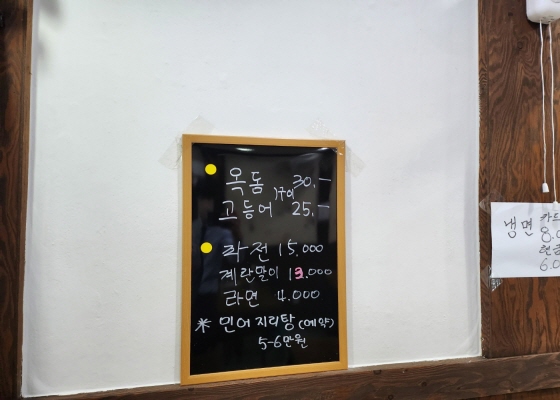 옥돔 30.-
구이
고등어 25.-
파전 15.000
계란말이 13.000
라면 4.000
※ 민어지리탕(예약)
5-6만원
냉면 카드
8.0
현금
6.0